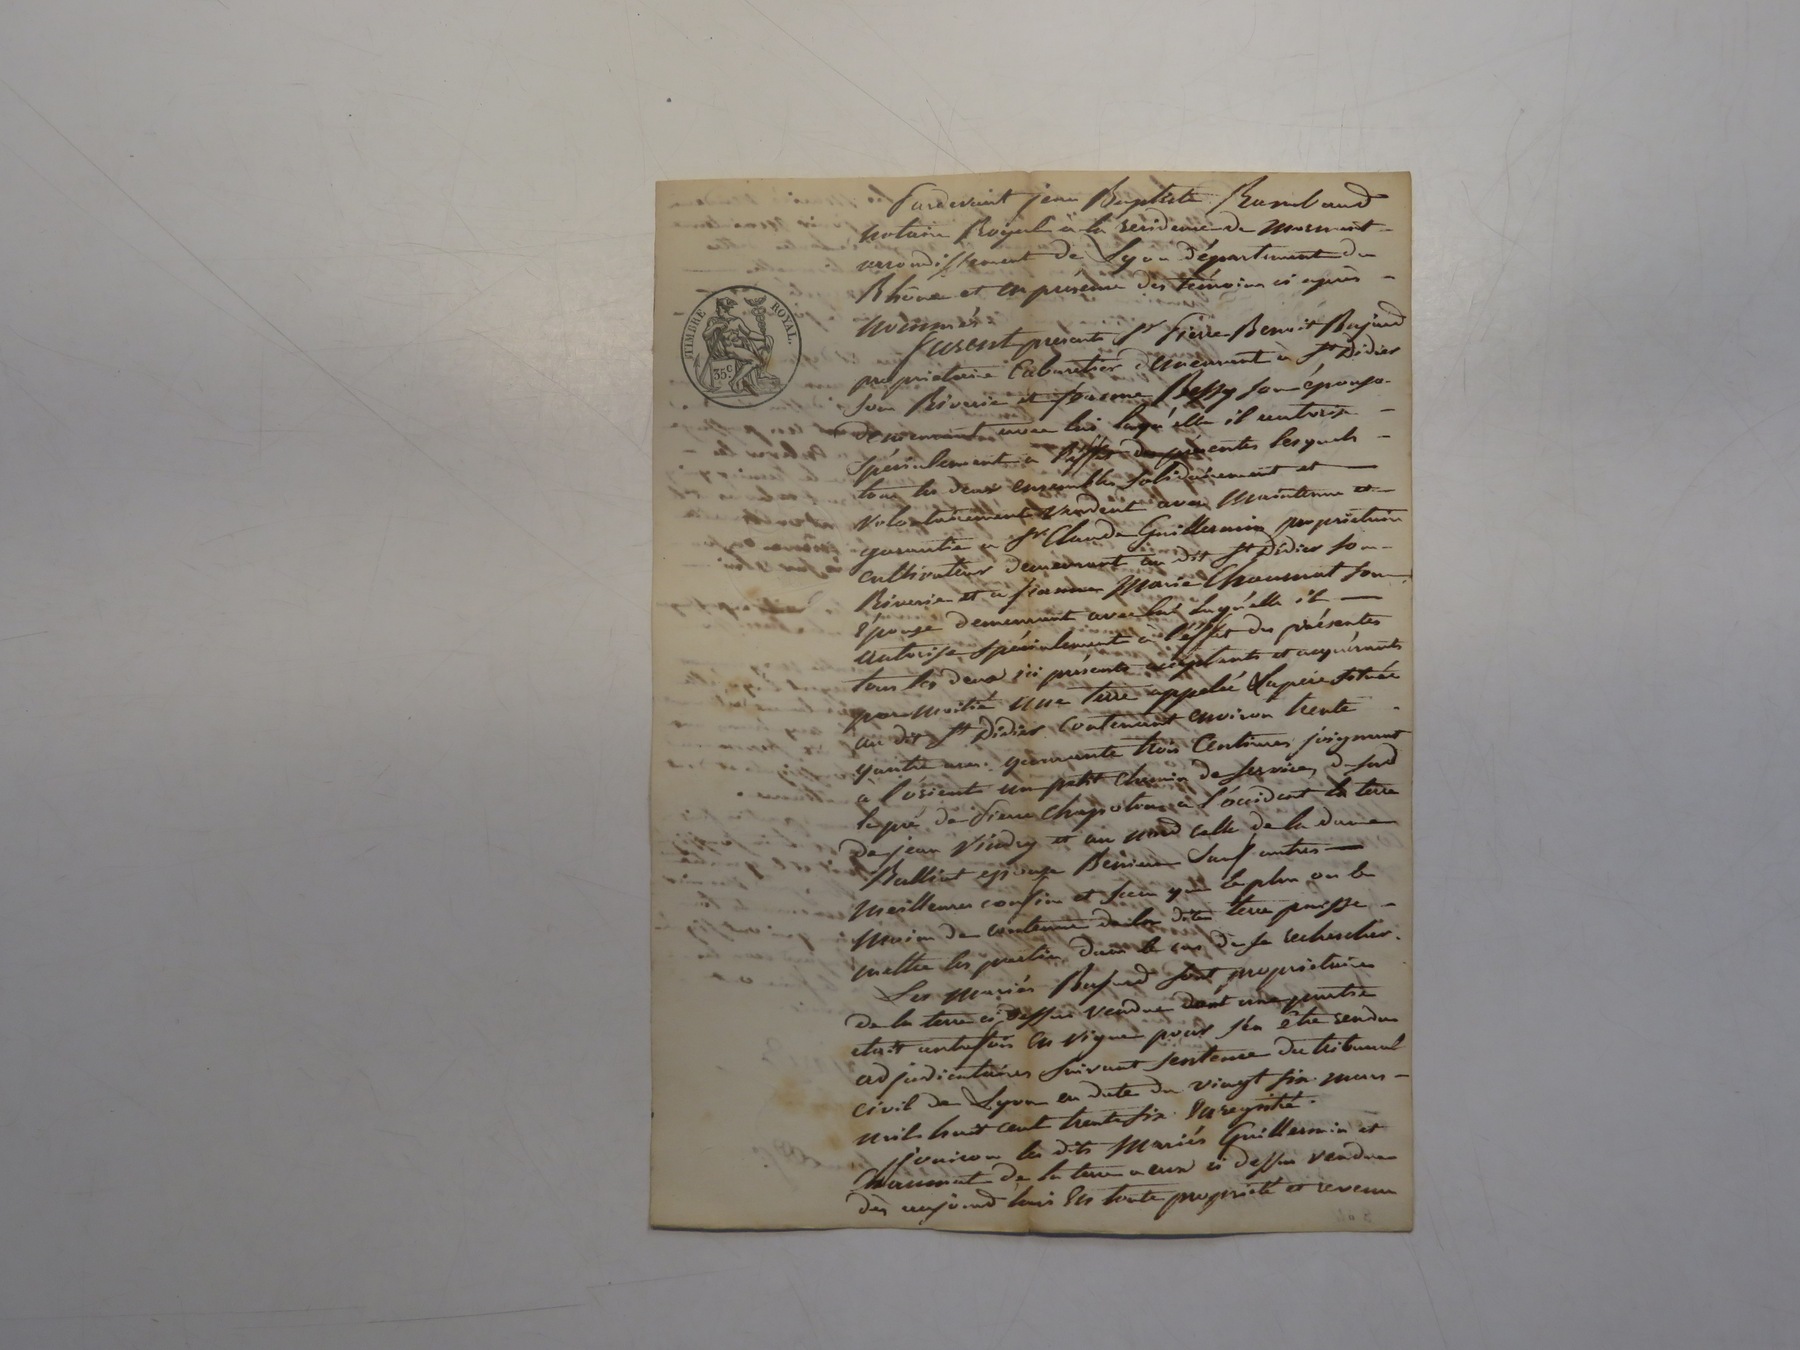 TIMBRE ROYAL.
35c.
Pardevant jean Baptiste Rambaud
notaire Royal à la residence de mornant
arrondissement de Lyon département du
Rhône et en présence des témoins ci après
nommés
furent presents Sr Pierre Benoit Bajard
propriétaire Cabaretier demeurant à St Didier
sou Riverie et femme Bessy son épouse
demeurant avec lui laqu'elle il autorise
spécialement a l'effet des présentes lesquels
tous les deux ensembles solidairement et
volontairement vendent avec maintenue et
garantie a Sr Claude Guillermin propriétaire
cultivateur demeurant au dit St Didier sou
Riverie et a femme Marie Chaumat son
épouse demeurant avec lui laqu'elle il
autorise spécialement à l'effet des présentes
tous les deux ici présents acceptants et acquérants
par moitié une terre appelée située
au dit St Didier contenant environ trente
quatre ares quarante trois Centiares joignant
à l'orient un petit chemin de service, du sud
le pré de Pierre Chapotton a l'occident la terre
de jean Vindry et au nord celle de la dame
Balliat épouse sauf autres
meilleures confins et sans que le plus ou le
moins de contenue de la dite terre puisse
mettre les parties dans le cas de se rechercher.
Les mariés Bajard sont propriétaires
de la terre ci dessus vendue dont une partie
etait autrefois en vigne pour s'en être rendu
adjudicataires suivant sentence du tribunal
civil de Lyon en date du vingt six mars
mils huit cent trente six Enregistré.
Jouiron les dits Mariés Guillermin et
Chaumat de la terre a eux ci dessus vendue
dès aujourd'hui En toute propriété et revenu